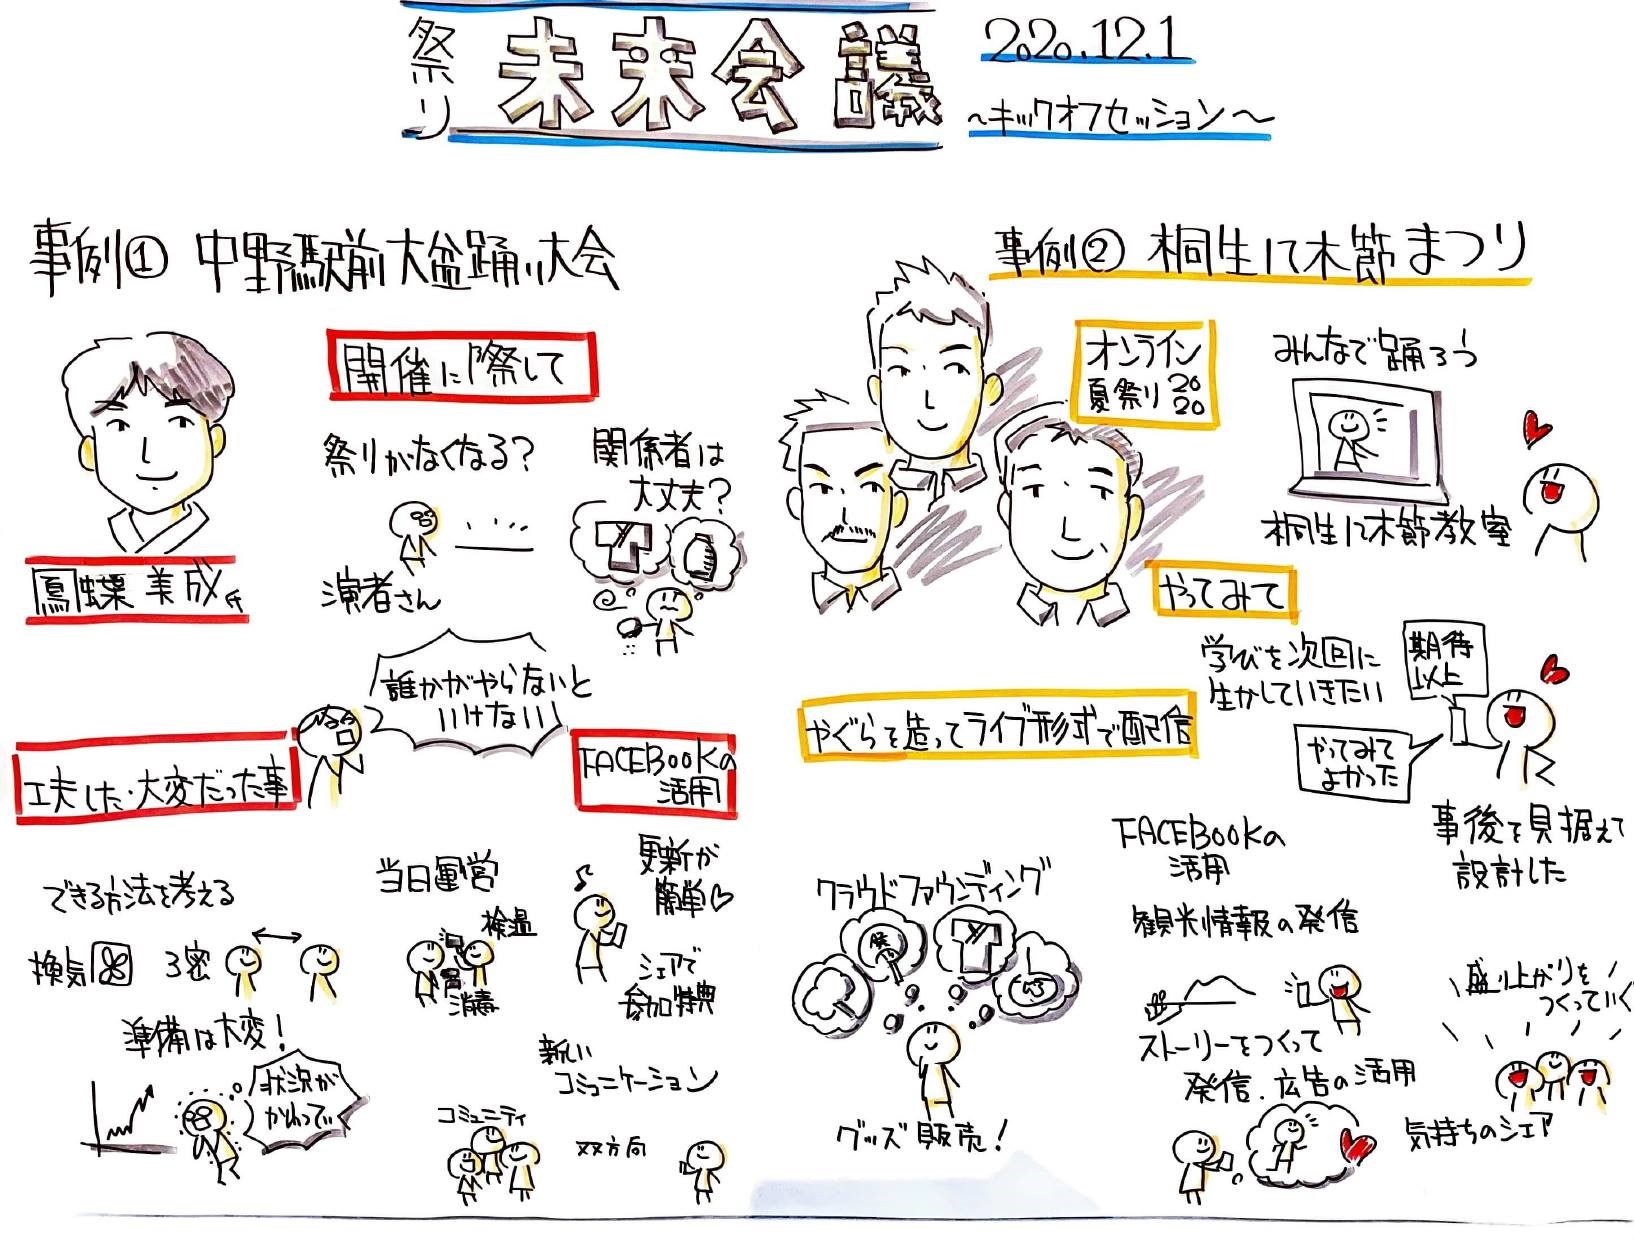 祭り
未来会議
2020.12.1
～キックオフセッション～
事例① 中野駅前大盆踊り大会
鳳蝶 美成氏
開催に際して
祭りがなくなる？
演者さん
関係者は
大丈夫？
誰かがやらないと
いけない
工夫した・大変だった事
できる方法を考える
換気
3密
準備は大変！
状況が
かわって…
当日運営
検温
消毒
FACEBOOKの
活用
更新が
簡単♡
シェアで
参加特典
新しい
コミュニケーション
コミュニティ
双方向
事例② 桐生八木節まつり
オンライン
夏祭り 2020
みんなで踊ろう
桐生八木節教室
やってみて
学びを次回に
生かしていきたい
期待
以上
やってみて
よかった
やぐらを造ってライブ形式で配信
クラウドファウンディング
祭
グッズ販売！
FACEBOOKの
活用
観光情報の発信
ストーリーをつくって
発信、広告の活用
事後を見据えて
設計した
盛り上がりを
つくっていく
気持ちのシェア